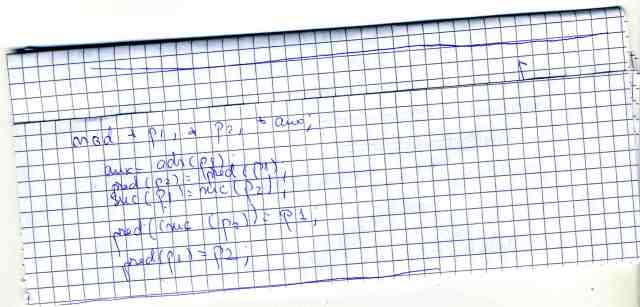 nod * p1, * p2, * aux;
aux = adr(p1);
pred(p2) = pred(p1);
suc(p1) = suc(p2);
pred(suc(p2)) = p1;
pred(p1) = p2;